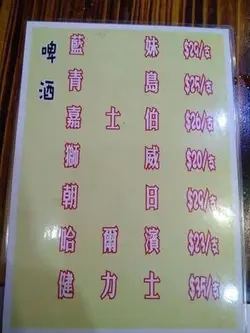 啤酒
藍妹 $29/支
青島 $25/支
嘉士伯 $26/支
獅威 $20/支
朝日 $29/支
哈爾濱 $23/支
健力士 $35/支